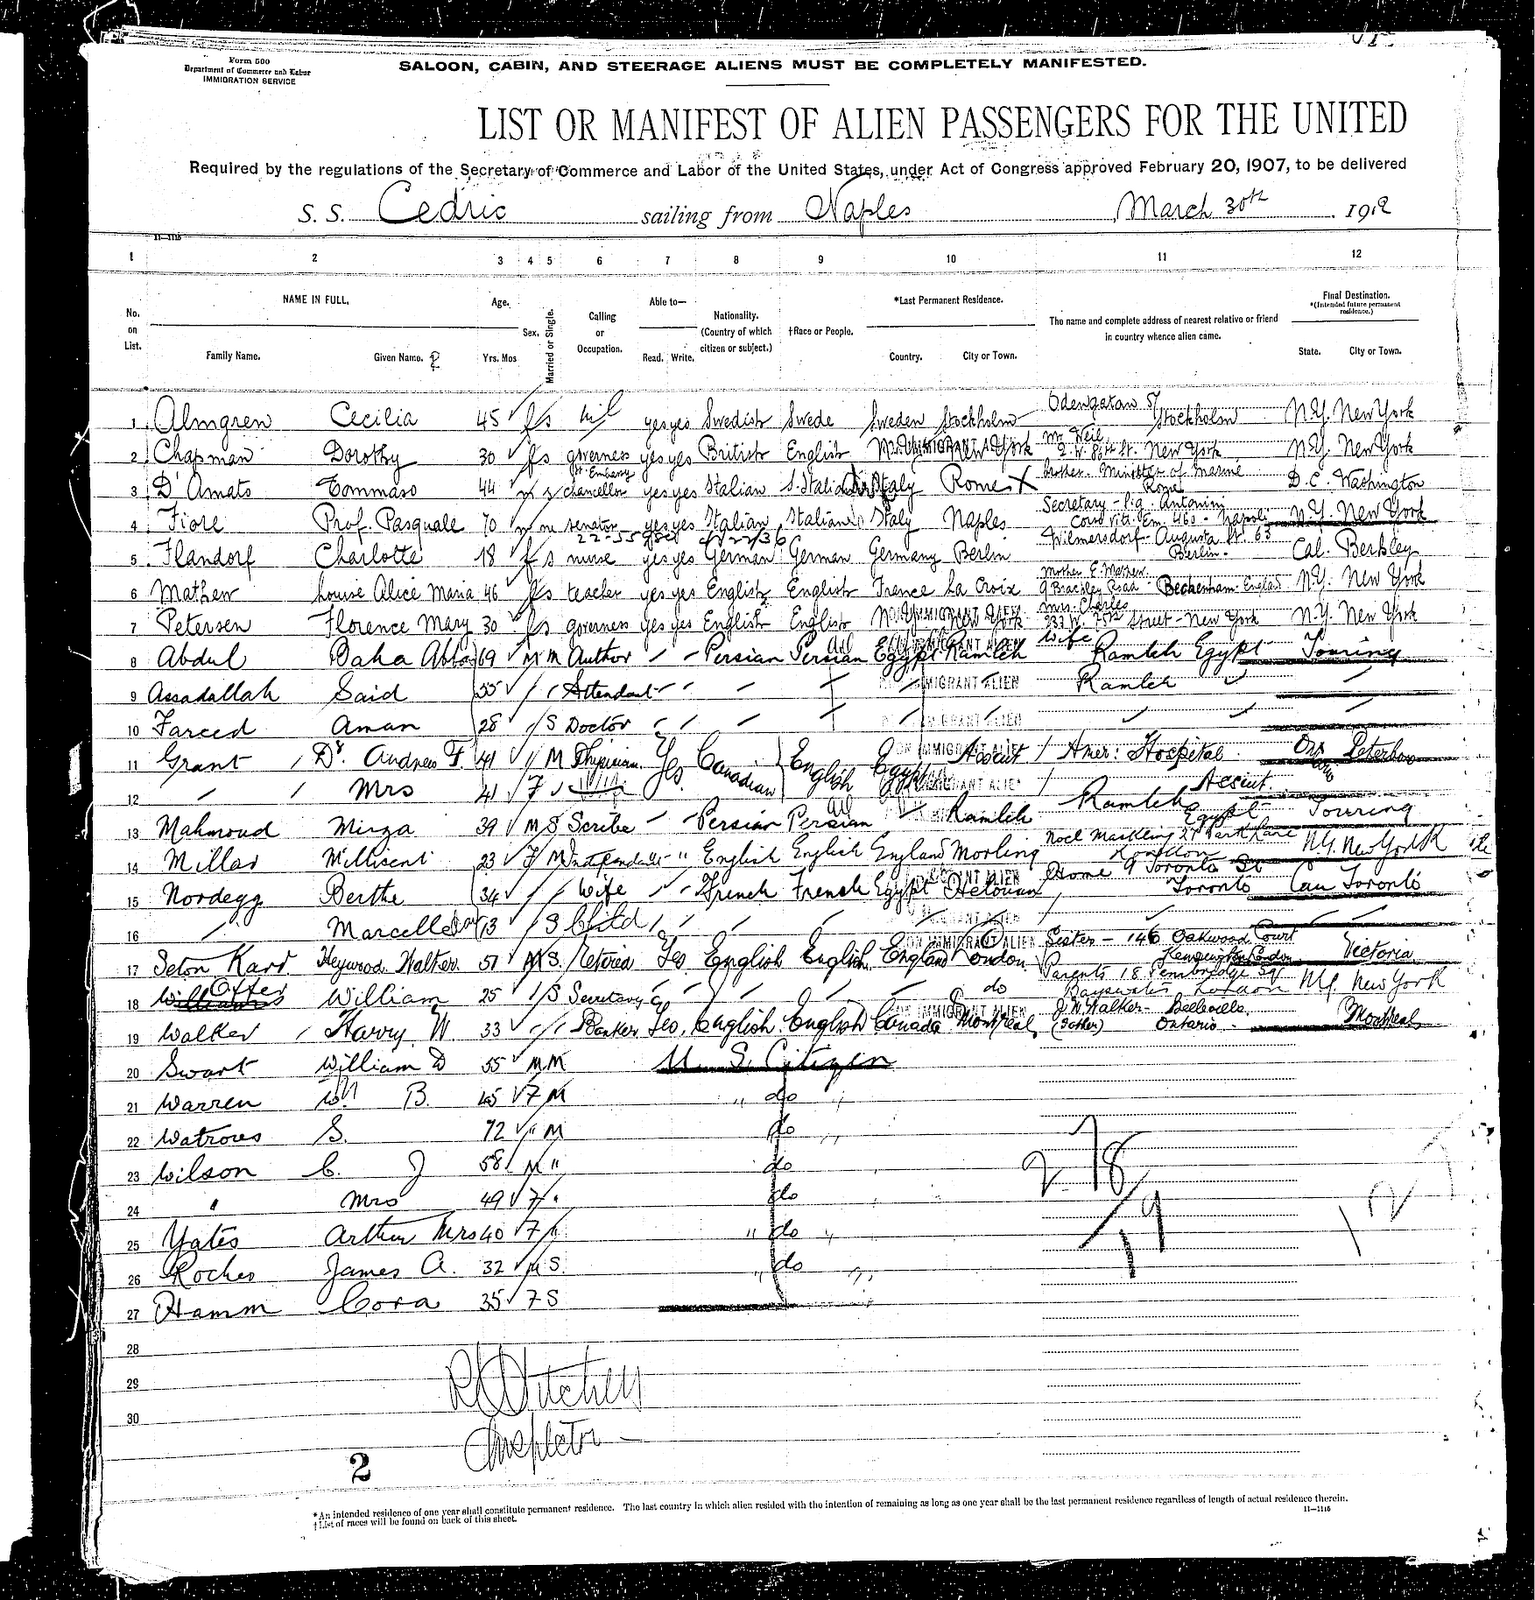 Form 500
Department of Commerce and Labor
IMMIGRATION SERVICE
SALOON, CABIN, AND STEERAGE ALIENS MUST BE COMPLETELY MANIFESTED.
LIST OR MANIFEST OF ALIEN PASSENGERS FOR THE UNITED
Required by the regulations of the Secretary of Commerce and Labor of the United States, under Act of Congress approved February 20, 1907, to be delivered
S. S. Cedric sailing from Naples March 30th 1912
11—1115
1 2 3 4 5 6 7 8 9 10 11 12
No. on List. NAME IN FULL. Family Name. Given Name. Age. Yrs. Mos Sex. Married or Single. Calling or Occupation. Able to— Read. Write. Nationality. (Country of which citizen or subject.) †Race or People. *Last Permanent Residence. Country. City or Town. The name and complete address of nearest relative or friend in country whence alien came. Final Destination. *(Intended future permanent residence.) State. City or Town.
1 Almgren Cecilia 45 f s nil yes yes Swedish Swede Sweden Stockholm Odengatan 57 Stockholm N.Y. New York
2 Chapman Dorothy 30 f s governess yes yes British English New York Mr. Weil 2 W. 86th St. New York N.Y. New York
3 D'Amato Tommaso 44 m s It. Embassy chancellor yes yes Italian S. Italian Italy Rome brother. Minister of Marine Rome D.C. Washington
4 Fiore Prof. Pasquale 70 m m senator yes yes Italian Italian Italy Naples Secretary - Antonini Corso Vitt. Em. 463 - Napoli N.Y. New York
5 Flandorf Charlotte 18 f s nurse yes yes German German Germany Berlin Wilmersdorf - Augusta St. 63 Berlin. Cal. Berkley
6 Mathew Louise Alice Maria 46 f s teacher yes yes English English France La Croix Mother E. Mathew. 9 Brackley Road Beckenham England N.Y. New York
7 Petersen Florence Mary 30 f s governess yes yes English English New York Mrs. Charles 233 W. Street - New York N.Y. New York
8 Abdul Baha Abbas 69 M M Author Persian Persian Egypt Ramleh Wife Ramleh Egypt Touring
9 Assadallah Said 55 Attendant Ramleh
10 Fareed Aman 28 S Doctor
11 Grant Dr. Andrew F. 41 M Physician Yes Canadian English Egypt Assiut Amer: Hospital. Assiut Ontario Peterboro
12 " Mrs 41 F
13 Mahmoud Mirza 39 M S Scribe Persian Persian Ramleh Ramleh Egypt Touring
14 Millar Millisent 23 F M English English England Morling Noel Markling 27 Park Lane London N.Y. New York
15 Nordegg Berthe 34 Wife French French Egypt Helouan Home 9 Toronto St Toronto Can Toronto
16 Marcelle 13 S Child
17 Seton Karr Heywood Walter 51 M S. Retired Yes English English England London Sister - 146 Oakwood Court Kensington London Victoria
18 Otter William 25 S Secretary do Parents 18 Pembridge Sq. Bayswater London N.Y. New York
19 Walker Harry W. 33 Banker Yes. English. English Canada Montreal J. W. Walker - Belleville (Father) Ontario - Montreal
20 Swart William D 55 M M U. S. Citizen
21 Warren Wm B. 45 F M " do "
22 Watrous S. 72 " M do "
23 Wilson C. J 58 M " do "
24 " Mrs 49 F " do "
25 Yates Arthur Mrs 40 F " " do "
26 Roche James A. 32 M S. " do "
27 Hamm Cora 35 F S
28
29
30
Inspector
2
*An intended residence of one year shall constitute permanent residence. The last country in which alien resided with the intention of remaining as long as one year shall be the last permanent residence regardless of length of actual residence therein.
†List of races will be found on back of this sheet.
11—1115